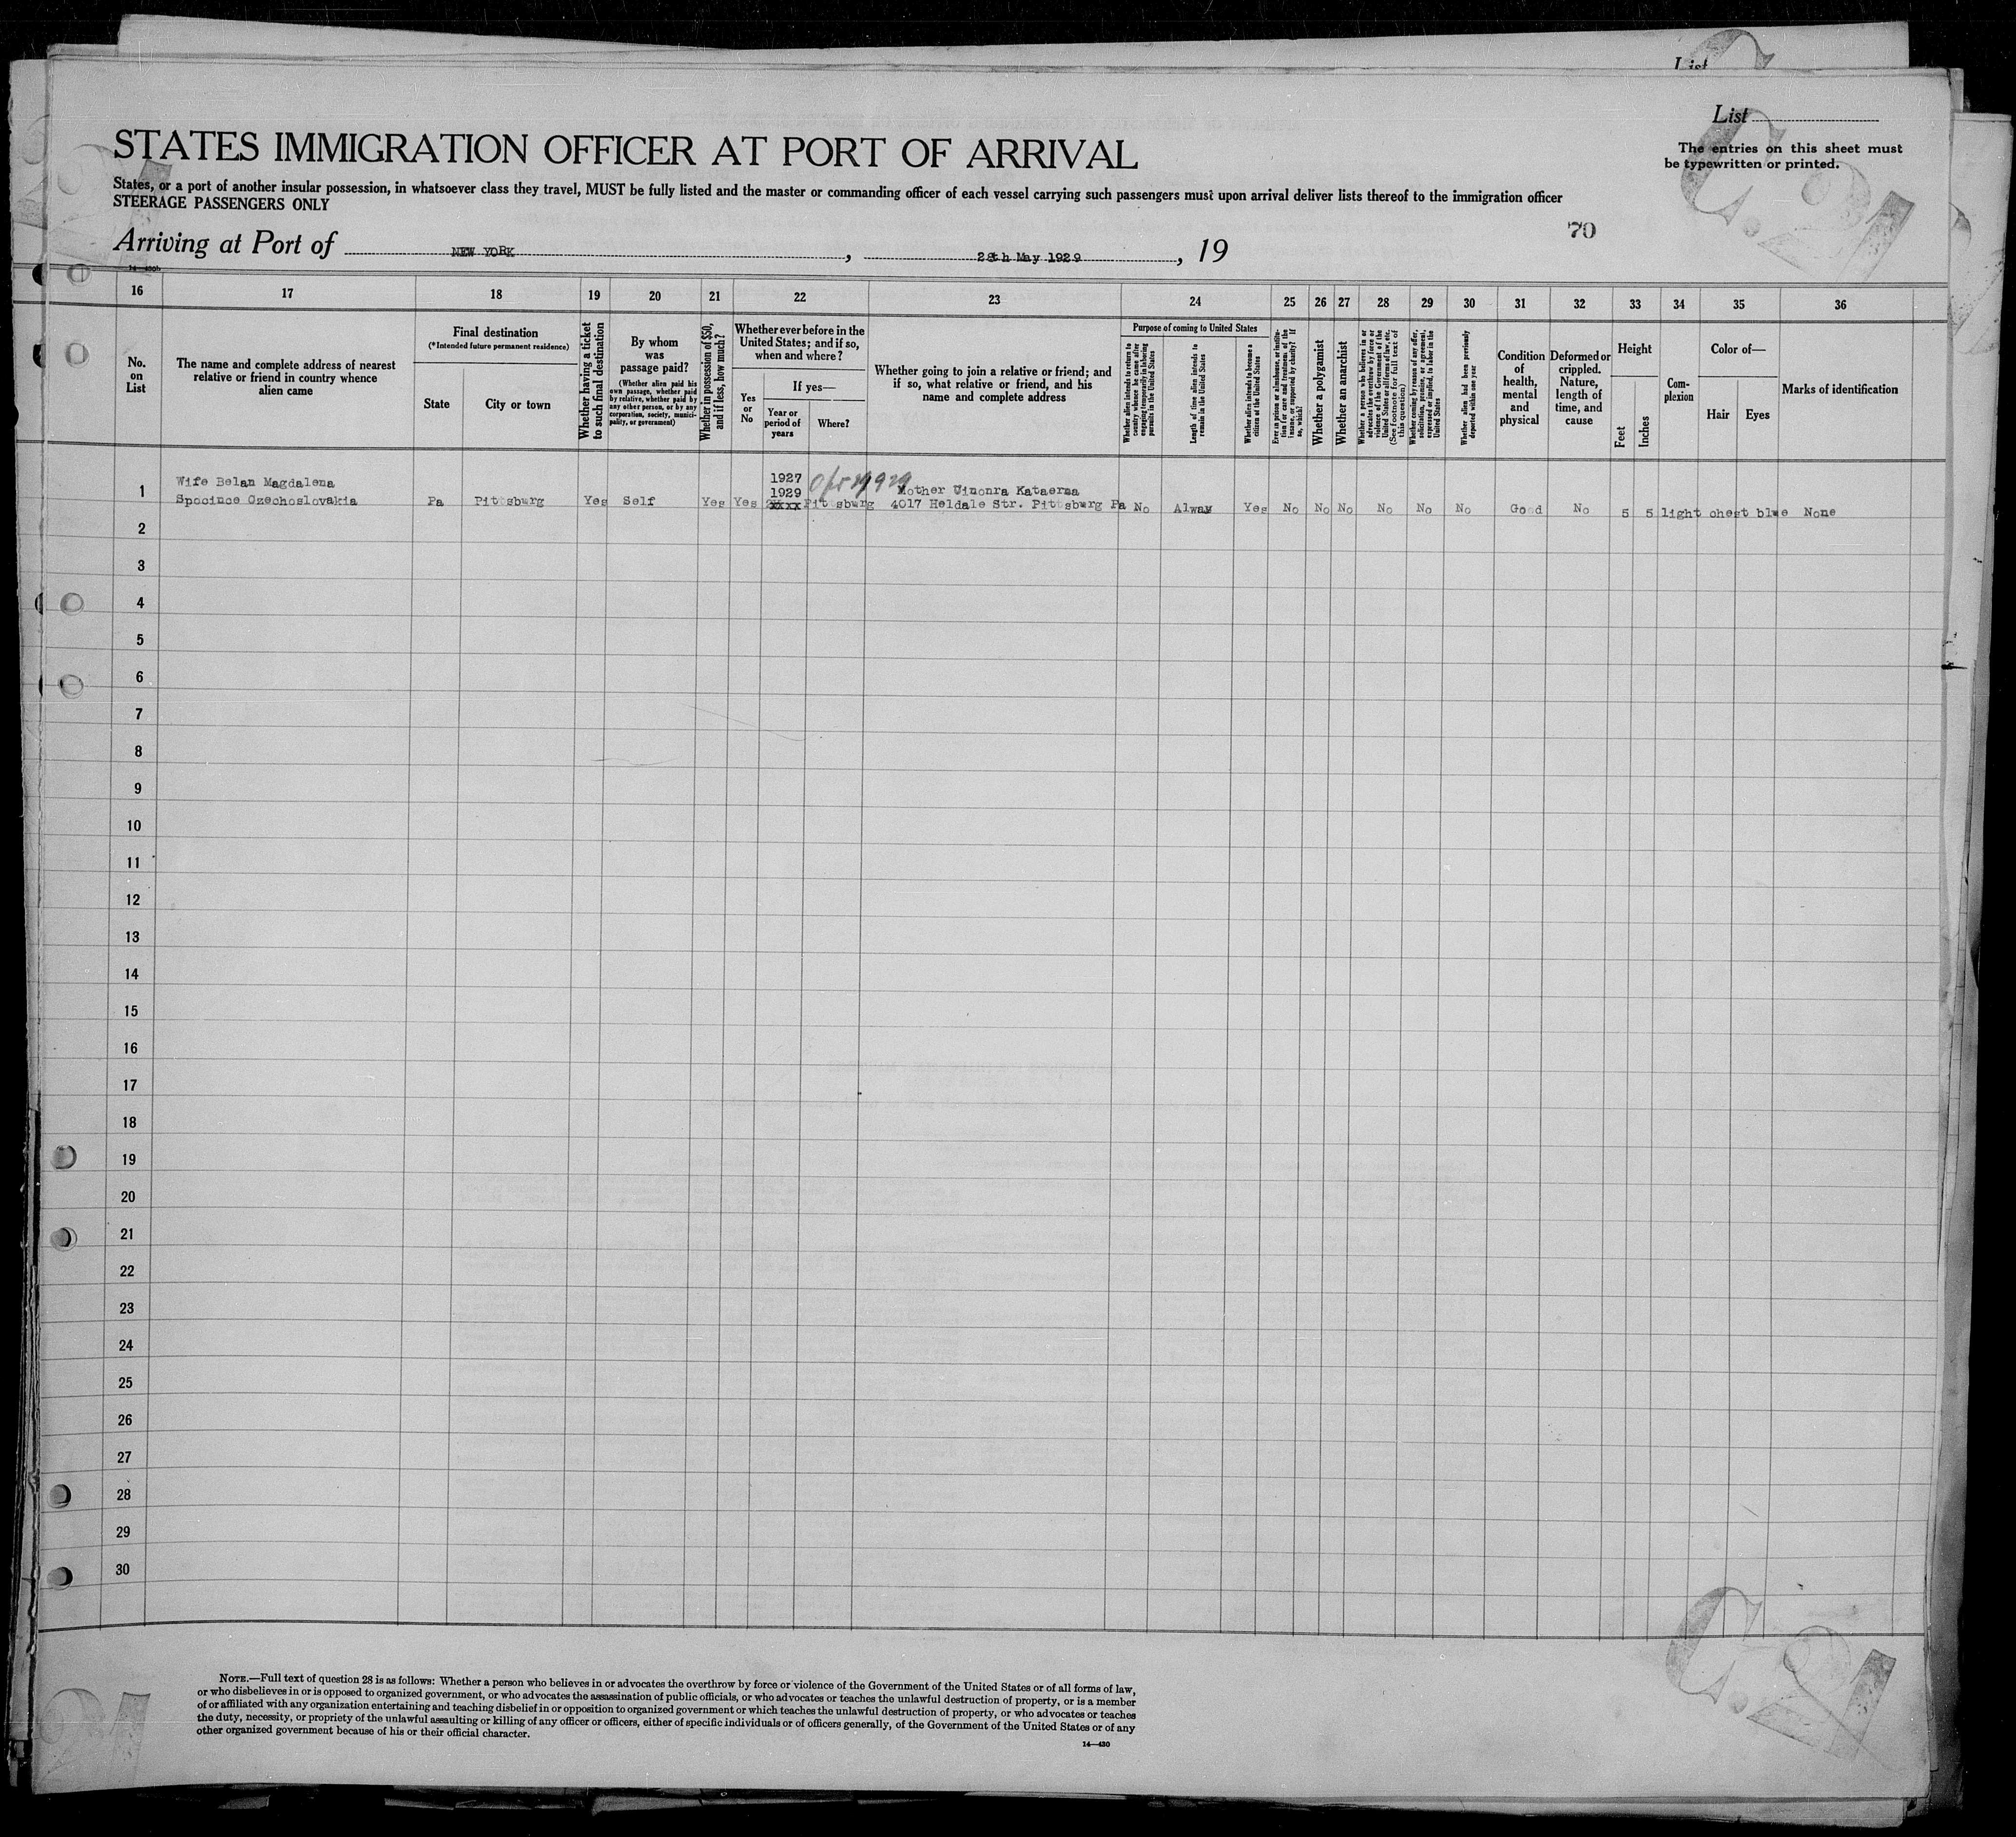 List
List
The entries on this sheet must
be typewritten or printed.
STATES IMMIGRATION OFFICER AT PORT OF ARRIVAL
States, or a port of another insular possession, in whatsoever class they travel, MUST be fully listed and the master or commanding officer of each vessel carrying such passengers must upon arrival deliver lists thereof to the immigration officer
STEERAGE PASSENGERS ONLY
70
Arriving at Port of NEW YORK, 28th May 1929, 19
16 17 18 19 20 21 22 23 24 25 26 27 28 29 30 31 32 33 34 35 36
No.
on
List
The name and complete address of nearest
relative or friend in country whence
alien came
Final destination
(*Intended future permanent residence)
State
City or town
Whether having a ticket
to such final destination
By whom
was
passage paid?
(Whether alien paid his
own passage, whether paid
by relative, whether paid by
any other person, or by any
corporation, society, munici-
pality, or government)
Whether in possession of $50,
and if less, how much?
Whether ever before in the
United States; and if so,
when and where?
Yes
or
No
If yes—
Year or
period of
years
Where?
Whether going to join a relative or friend; and
if so, what relative or friend, and his
name and complete address
Purpose of coming to United States
Whether alien intends to return to
country whence he came after
engaging temporarily in laboring
pursuits in the United States
Length of time alien intends to
remain in the United States
Whether alien intends to become a
citizen of the United States
Ever in prison or almshouse, or institu-
tion for care and treatment of the
insane, or supported by charity? If
so, which?
Whether a polygamist
Whether an anarchist
Whether a person who believes in or
advocates the overthrow by force or
violence of the Government of the
United States or all forms of law, etc.
(See footnote for full text of
this question)
Whether coming by reason of any offer,
solicitation, promise, or agreement,
expressed or implied, to labor in the
United States
Whether alien had been previously
deported within one year
Condition
of
health,
mental
and
physical
Deformed or
crippled.
Nature,
length of
time, and
cause
Height
Feet
Inches
Com-
plexion
Color of—
Hair
Eyes
Marks of identification
1 Wife Belan Magdalena
Spocince Czechoslovakia
Pa Pittsburg Yes Self Yes Yes
1927
1929
Pittsburg
Mother Uinonra Kataerna
4017 Heldale Str. Pittsburg Pa
No Alway Yes No No No No No No Good No 5 5 light chest blue None
2
3
4
5
6
7
8
9
10
11
12
13
14
15
16
17
18
19
20
21
22
23
24
25
26
27
28
29
30
NOTE.—Full text of question 28 is as follows: Whether a person who believes in or advocates the overthrow by force or violence of the Government of the United States or of all forms of law,
or who disbelieves in or is opposed to organized government, or who advocates the assassination of public officials, or who advocates or teaches the unlawful destruction of property, or is a member
of or affiliated with any organization entertaining and teaching disbelief in or opposition to organized government or which teaches the unlawful destruction of property, or who advocates or teaches
the duty, necessity, or propriety of the unlawful assaulting or killing of any officer or officers, either of specific individuals or of officers generally, of the Government of the United States or of any
other organized government because of his or their official character.
14—430